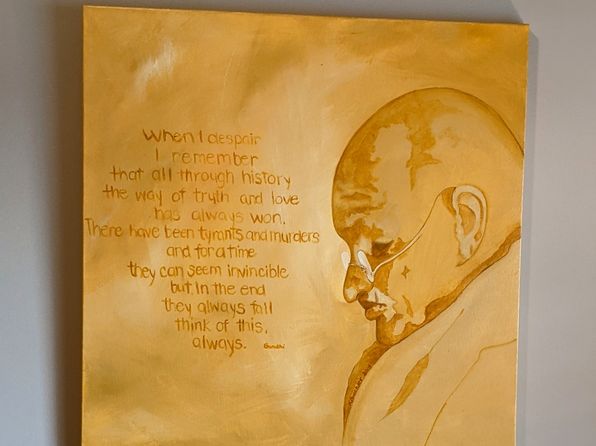 When I despair
I remember
that all through history
the way of truth and love
has always won.
There have been tyrants and murders
and for a time
they can seem invincible
but in the end
they always fall
think of this,
always. Gandhi